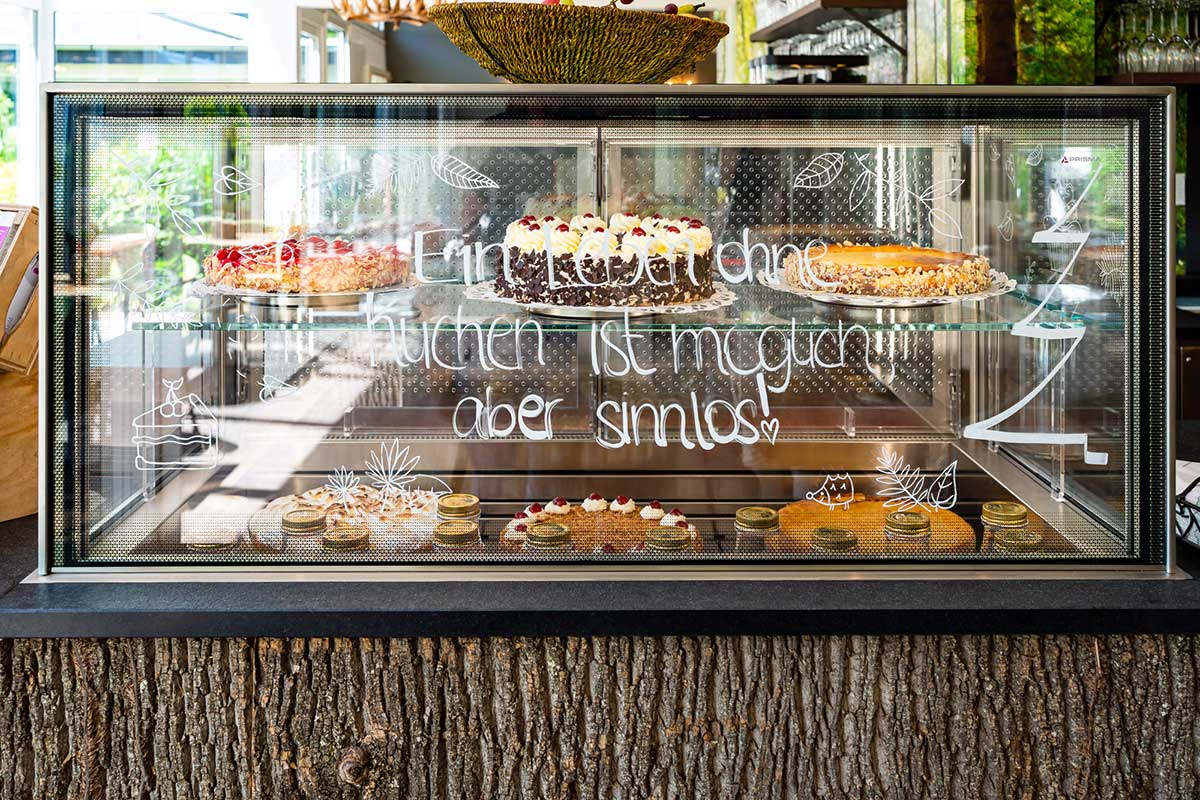 PRISMA
Ein Leben ohne
Kuchen ist möglich,
aber sinnlos!